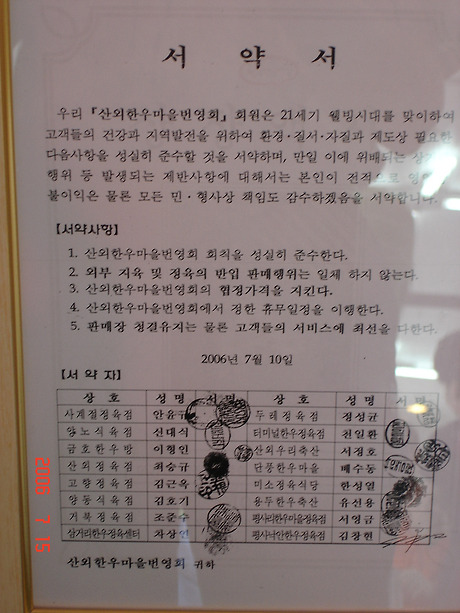 서 약 서
우리 『산외한우마을번영회』 회원은 21세기 웰빙시대를 맞이하여
고객들의 건강과 지역발전을 위하여 환경·질서·가질과 제도상 필요한
다음사항을 성실히 준수할 것을 서약하며, 만일 이에 위배되는
행위 등 발생되는 제반사항에 대해서는 본인이 전적으로
불이익은 물론 모든 민·형사상 책임도 감수하겠음을 서약합니다.
【서약사항】
1. 산외한우마을번영회 회칙을 성실히 준수한다.
2. 외부 지육 및 정육의 반입 판매행위는 일체 하지 않는다.
3. 산외한우마을번영회의 협정가격을 지킨다.
4. 산외한우마을번영회에서 정한 휴무일정을 이행한다.
5. 판매장 청결유지는 물론 고객들의 서비스에 최선을 다한다.
2006년 7월 10일
【서 약 자】
상 호 성 명 서 명 상 호 성 명 서 명
사계절정육점 안윤규 두레정육점 정성균
양노식육점 신대식 터미널한우정육점 전일환
금호한우방 이형인 산외우리축산 서정호
산외정육점 최승규 단풍한우마을 배수동
고향정육점 김근옥 미소정육식당 한성열
양동식육점 김호기 용두한우축산 유선용
거북정육점 조준수 평사리한우마을정육점 서영금
삼거리한우정육센터 차상인 평사낙안한우정육점 김창헌
산외한우마을번영회 귀하
2006 7 15